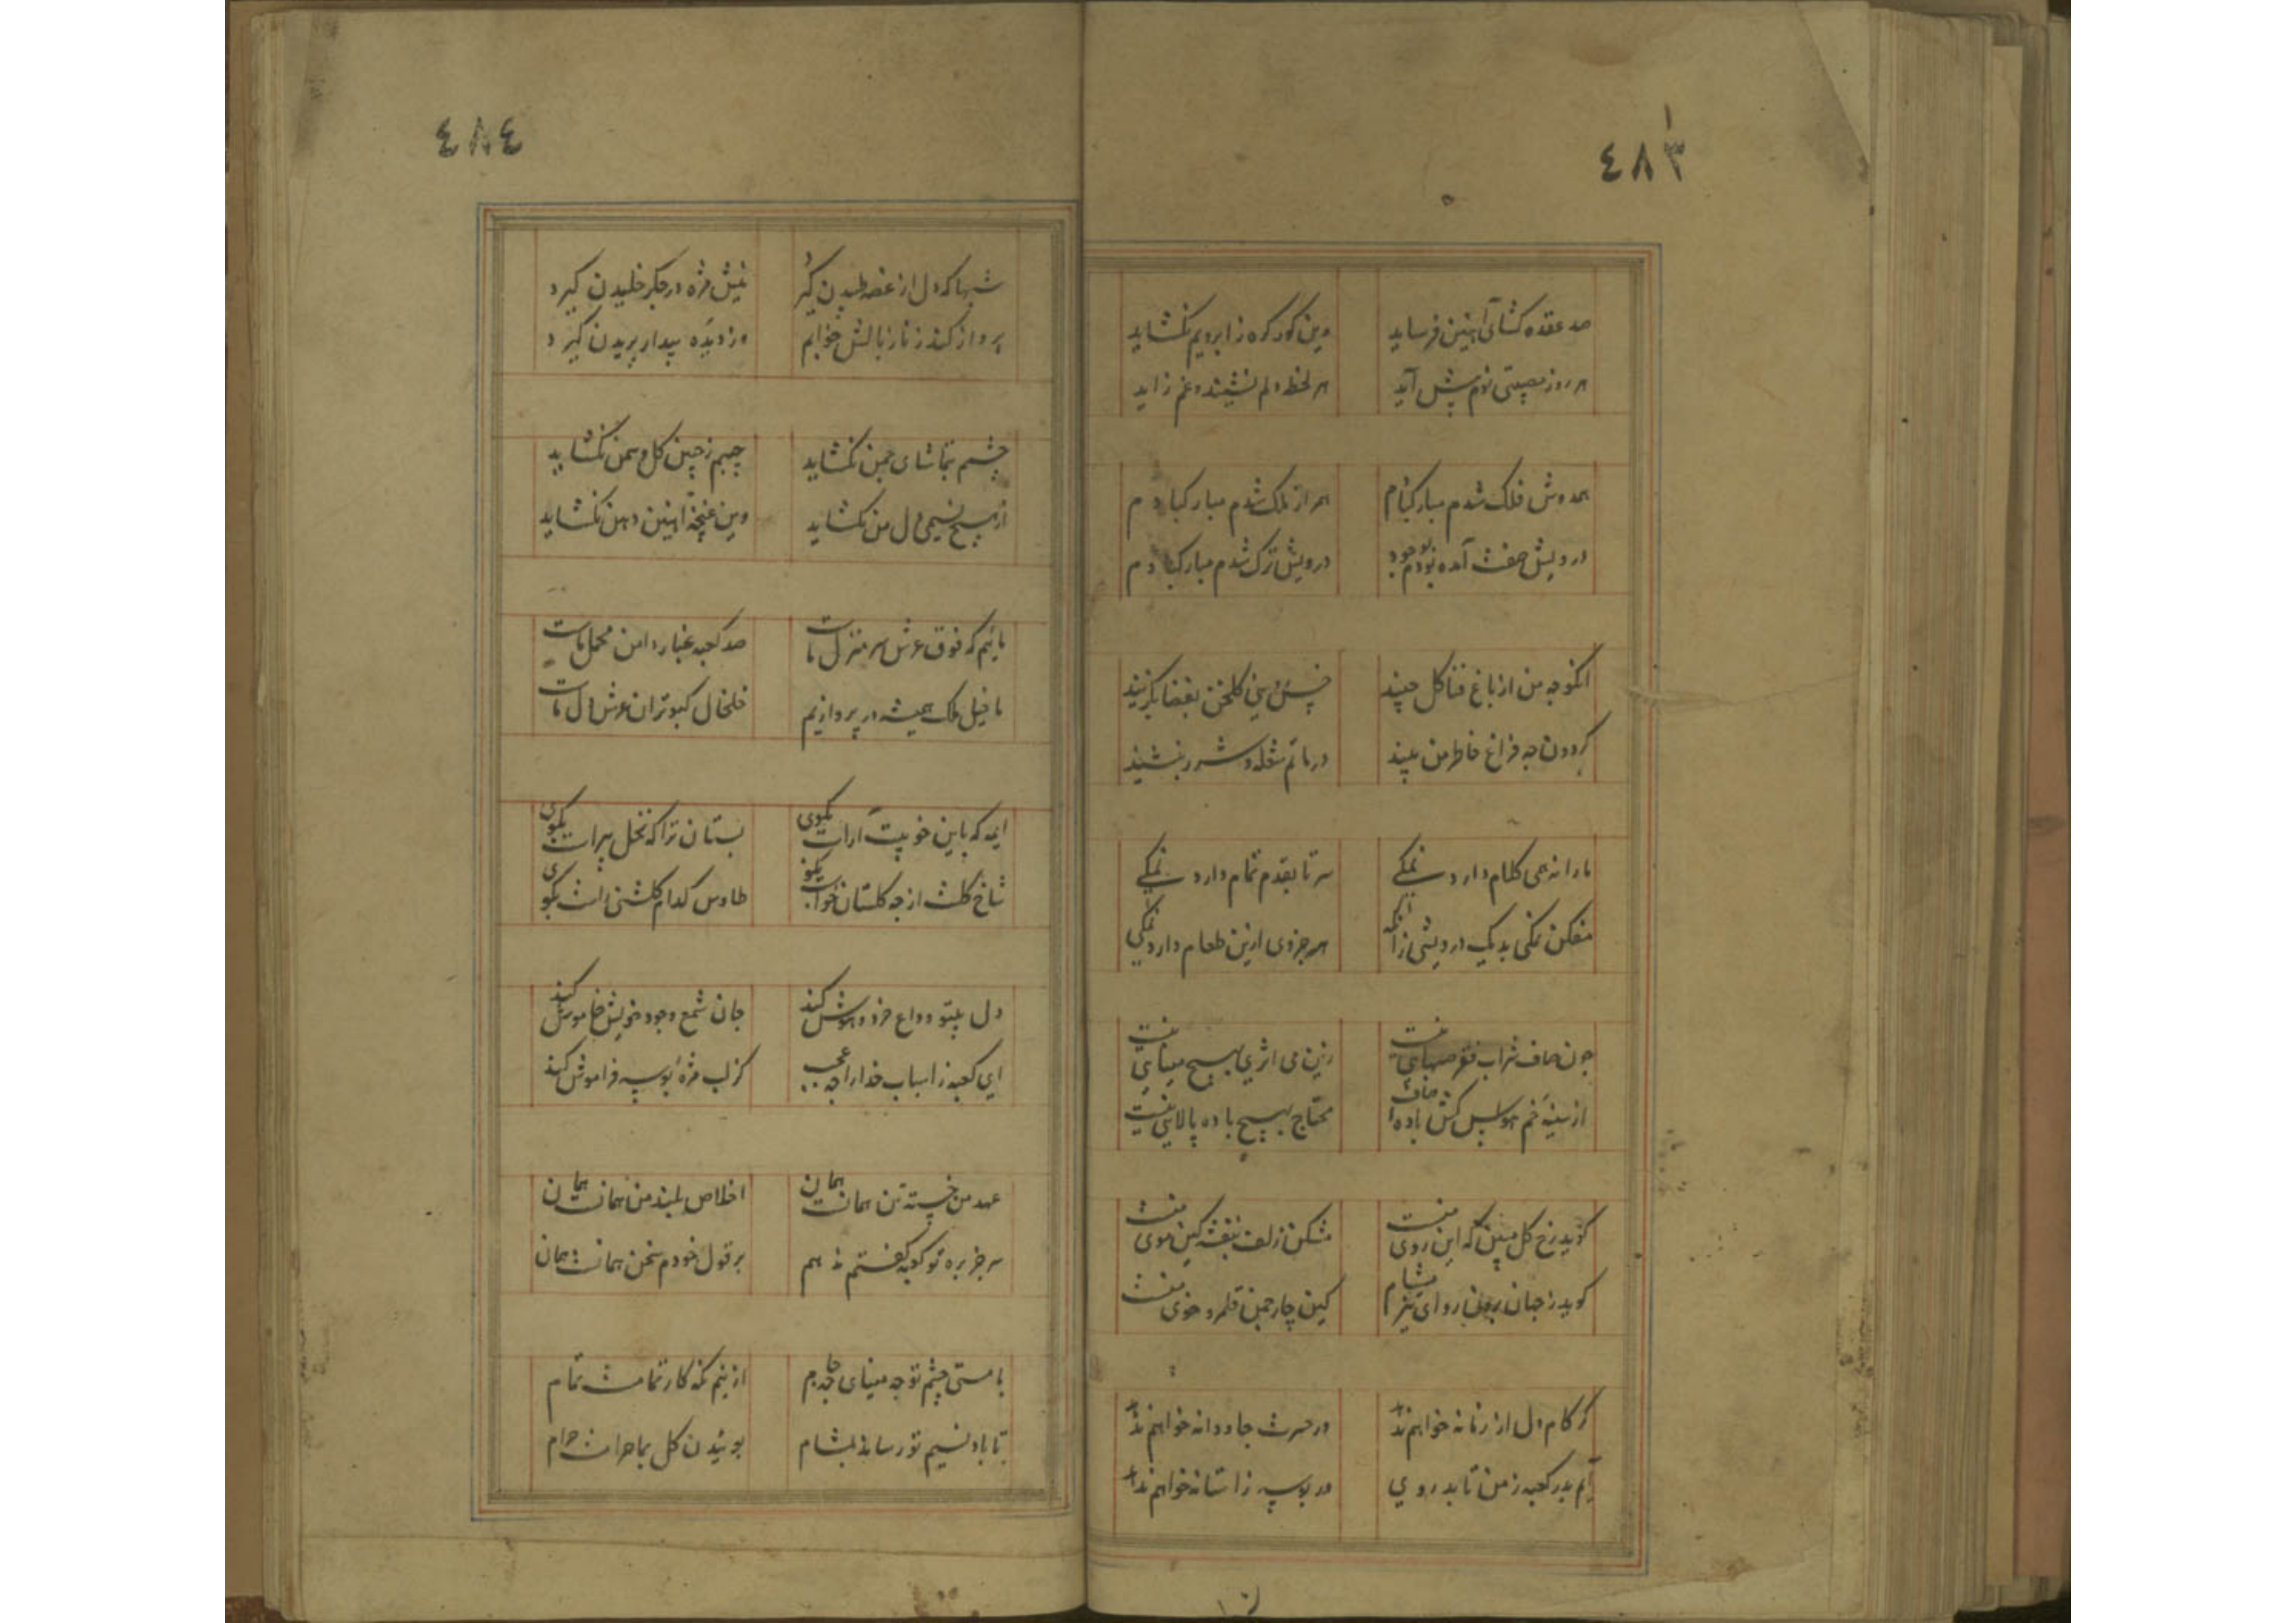 ٤٨٣
صد عقده کشای آهنین فرساید
وین کور کره ز ابرویم نکشاید
هر روز مصیبتی نوم پیش آید
هر لحظه دلم نشیند و غم زاید
همدوش فلک شدم مبارکبادم
همراز ملک شدم مبارکبادم
درویش صفت آمده بودم بوجود
درویش ترک شدم مبارکبادم
انکو چه من از باغ فنا کل چیند
کردون چه فراغ خاطر من بیند
در ماتم شعله و شرر بنشیند
ما را نه همی کلام دارد نمکی
سر تا بقدم تمام دارد نمکی
مفکن نمکی بدیک درویشی از آنکه
هر جزوی ازین طعام دارد نمکی
چون صاف شراب فقر صهبایی نیست
زین می اثری بهیچ مینایی نیست
از سینه خم هوس کش باده صاف
محتاج بهیچ باده پالایی نیست
کوید رخ کل مبین که این روی منست
مشکن زلف بنفشه کین موی منست
کوید ز جنان
کین چار چمن قلمرو خوی منست
کر کام دل از زمانه خواهم ندهد
در حسرت جاودانه خواهم ندهد
آیم بدر کعبه ز من تابد روی
ور بوسه ز استانه خواهم ندهد
٤٨٤
شبها که دل از غصه طپیدن کیرد
نیش مژه در جکر خلیدن کیرد
پرواز کند ز ناز بالش خوابم
وز دیده بیدار پریدن کیرد
چشمم بتماشای چمن نکشاید
چیبم ز چین کل و سمن نکشاید
از هیچ نسیمی دل من نکشاید
وین غنچه آهنین دهن نکشاید
مائیم که فوق عرش سر منزل ماست
صد کعبه غبار دامن محمل ماست
ما خیل ملک همیشه در پروازیم
خلخال کبوتران عرش دل ماست
اینه که باین خوبیت آراست بکوی
بستان ترا که نخل پیراست بکوی
شاخ کلت از چه کلستان خواست بکو
طاوس کدام کلشنی راست بکوی
دل بیتو وداع خرد و هوش کند
جان شمع وجود خویش خاموش کند
ای کعبه ز اسباب خدا را چه عجب
کز لب مژه بوسه فراموش کند
عهد من خسته تن همانست همان
اخلاص بلند من همانست همان
سر جز بره تو کعبه کفتم ننهم
بر قول خودم سخن همانست همان
با مستی چشم تو چه مینای چه جام
از نیم نکه کار تمامست تمام
تا باد نسیم تو رساند بمشام
بوئیدن کل بما حرامست حرام